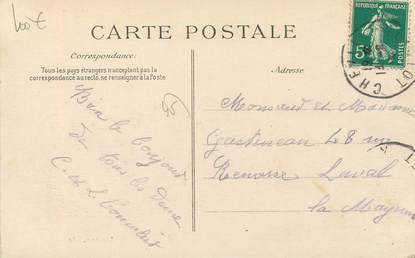 100 €
CARTE POSTALE
Correspondance:
Tous les pays étrangers n'acceptant pas la
correspondance au recto, se renseigner à la Poste
Adresse
REPUBLIQUE FRANÇAISE
5
Bien le bonjour
de tous les deux
Monsieur et Madame
Gastineau 48 rue
Laval
la Mayenne